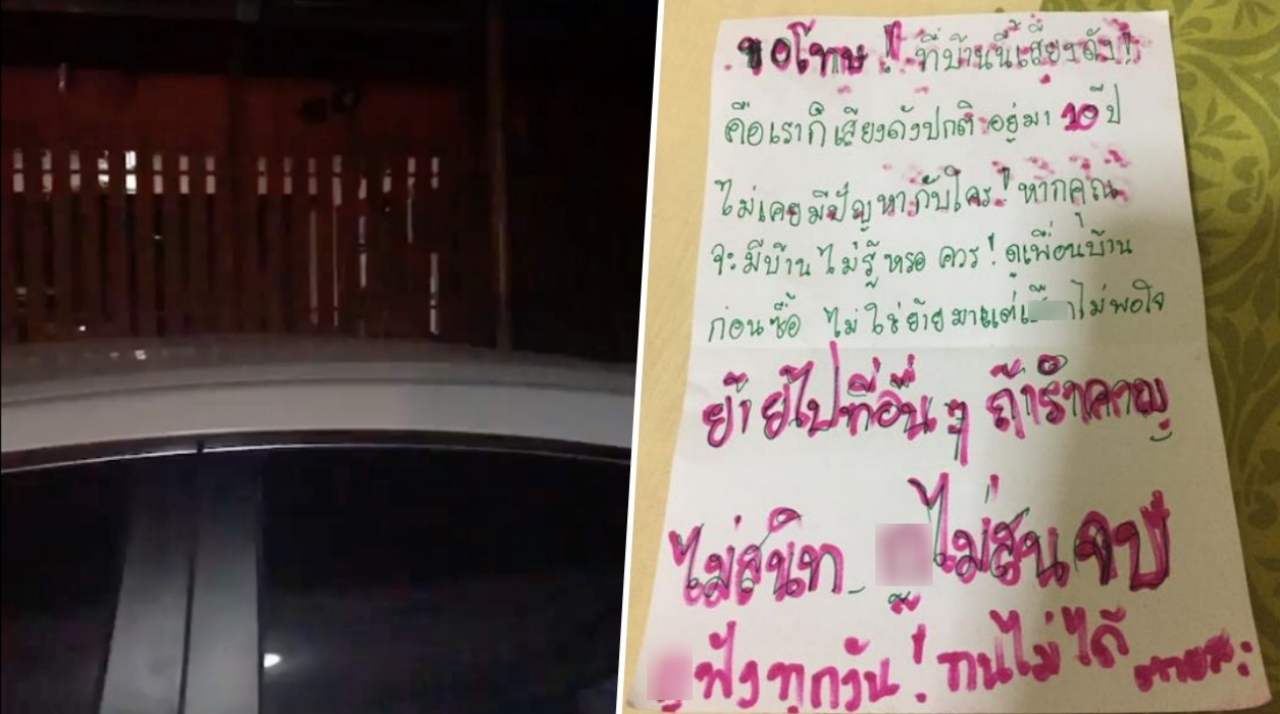 ขอโทษ! ที่บ้านนี้เสียงดัง!
คือเราก็เสียงดังปกติ อยู่มา 10 ปี
ไม่เคยมีปัญหากับใคร! หากคุณ
จะมีบ้าน ไม่รู้หรอ ควร! ดูเพื่อนบ้าน
ก่อนซื้อ ไม่ใช่ย้ายมาแต่ ไม่พอใจ
ย้ายไปที่อื่นๆ ถ้ารำคาญ
ไม่สนิท ไม่สน จบ
ฟังทุกวัน! ทนไม่ได้